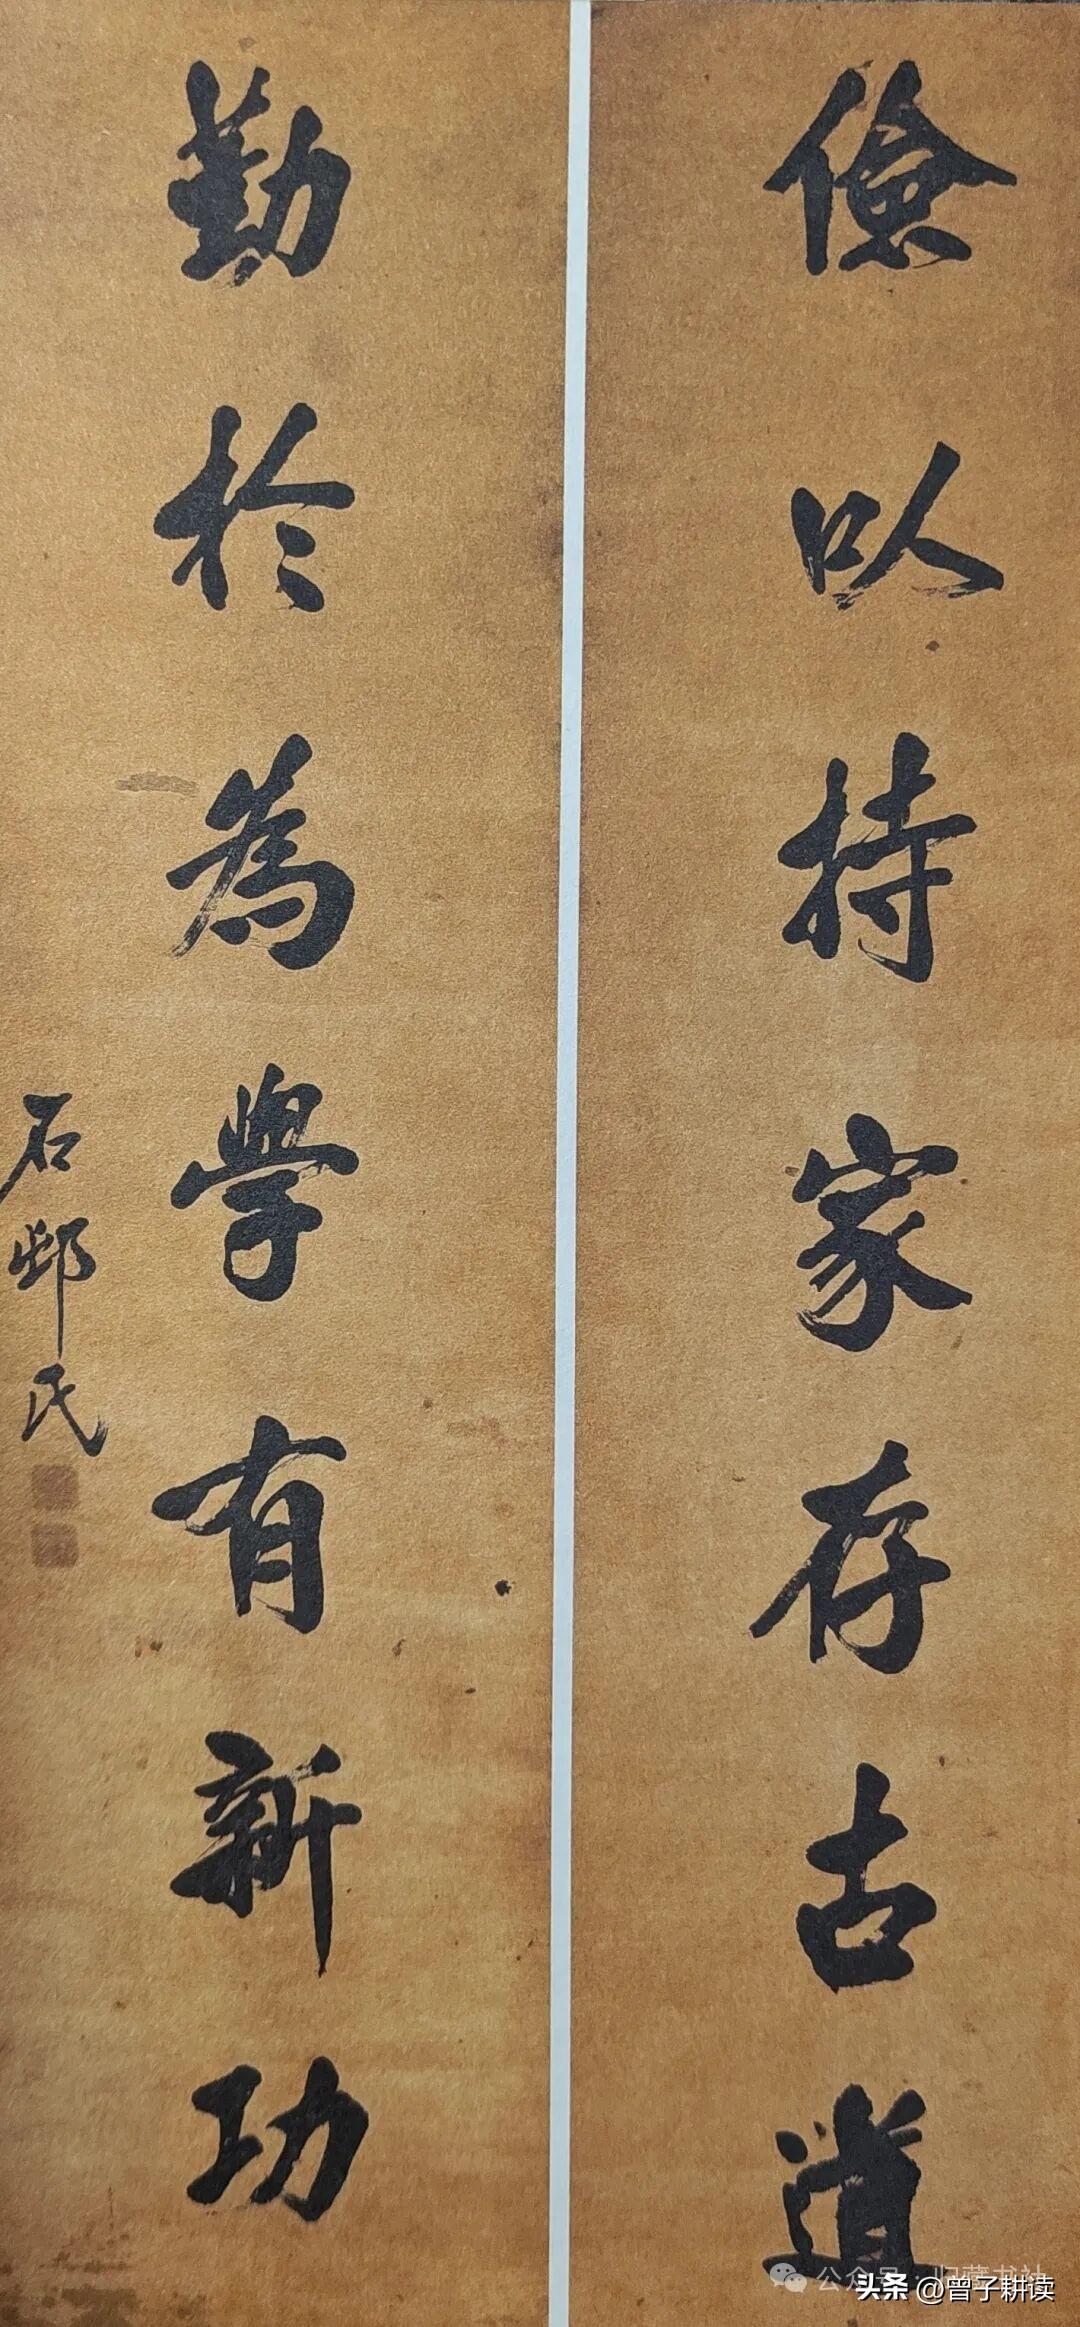 儉以持家存古道
勤於為學有新功
石邨氏
公众号·归藏书社
头条 @曾子耕读